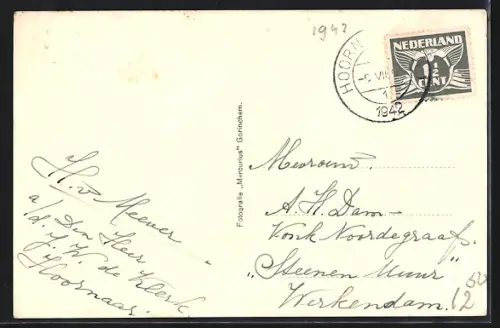 1942
NEDERLAND
1½
CENT
HOORN
1942
Fotografie „Mercurius" Gorinchem.
H. v Meever
a/ Den Heer
/d. J. W. de Klerk.
Hoornaar.
Mevrouw.
A. H. Dam-
Vonk Noordegraaf.
„Steenen Muur"
Werkendam.
50
12